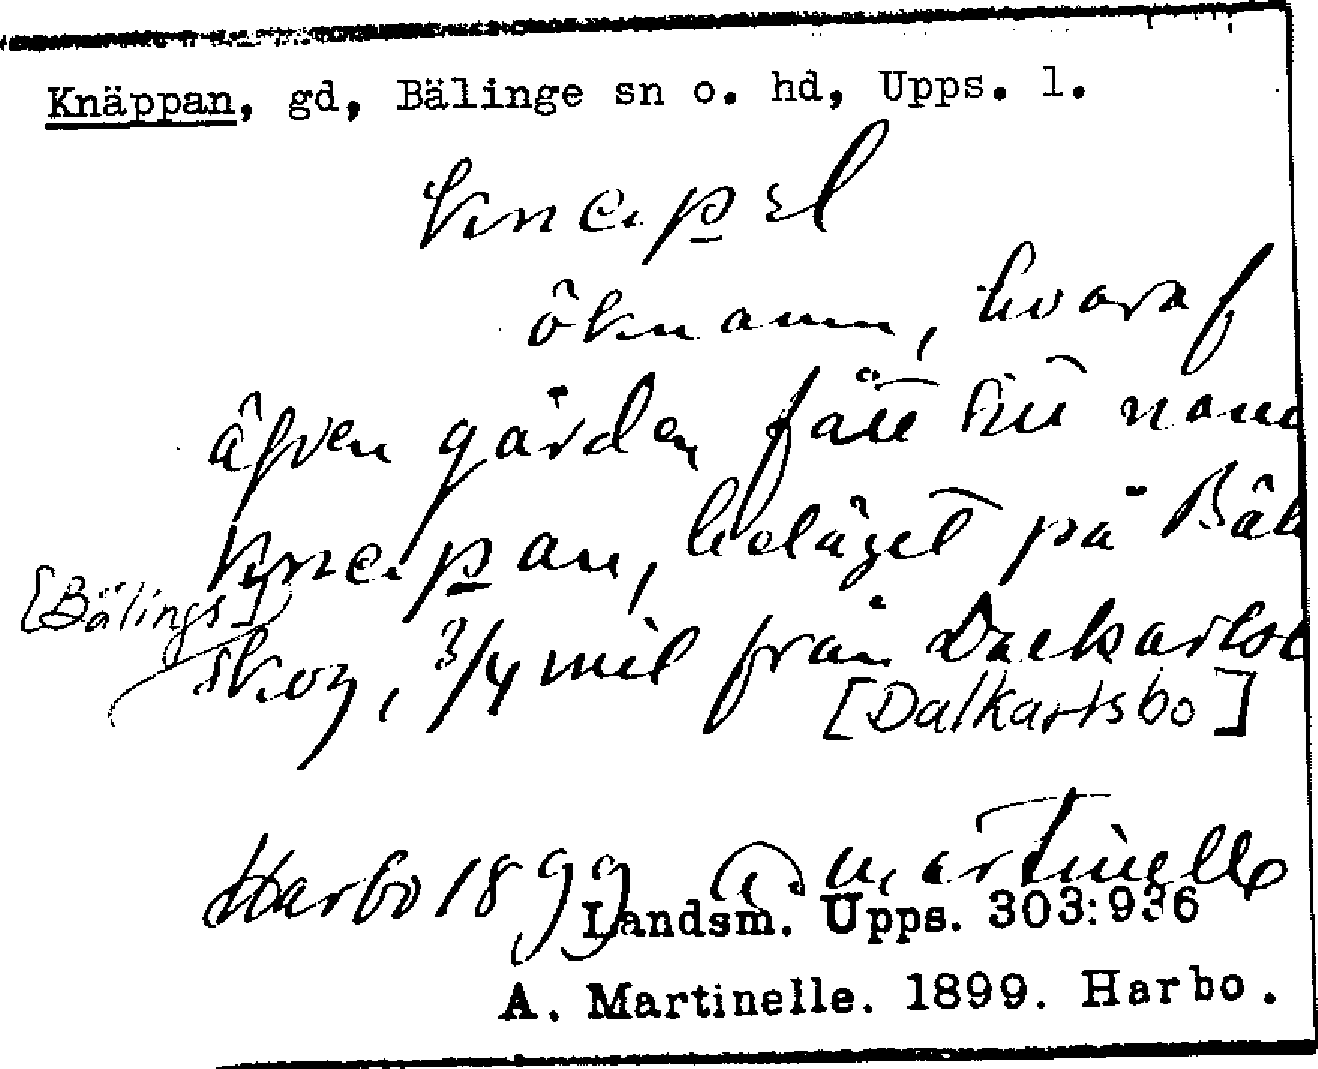 Knäppan, gd, Bälinge sn o. hd, Upps. l.
knepel
öknamn, hvaraf
äfven gården fått sitt namn
knepan, beläget på Bäl
[Bälings]
skog, 3/4 mil från Dackarlsb
[Dalkarlsbo]
Harbo 1899 A. Martinelle
Landsm. Upps. 303:936
A. Martinelle. 1899. Harbo.